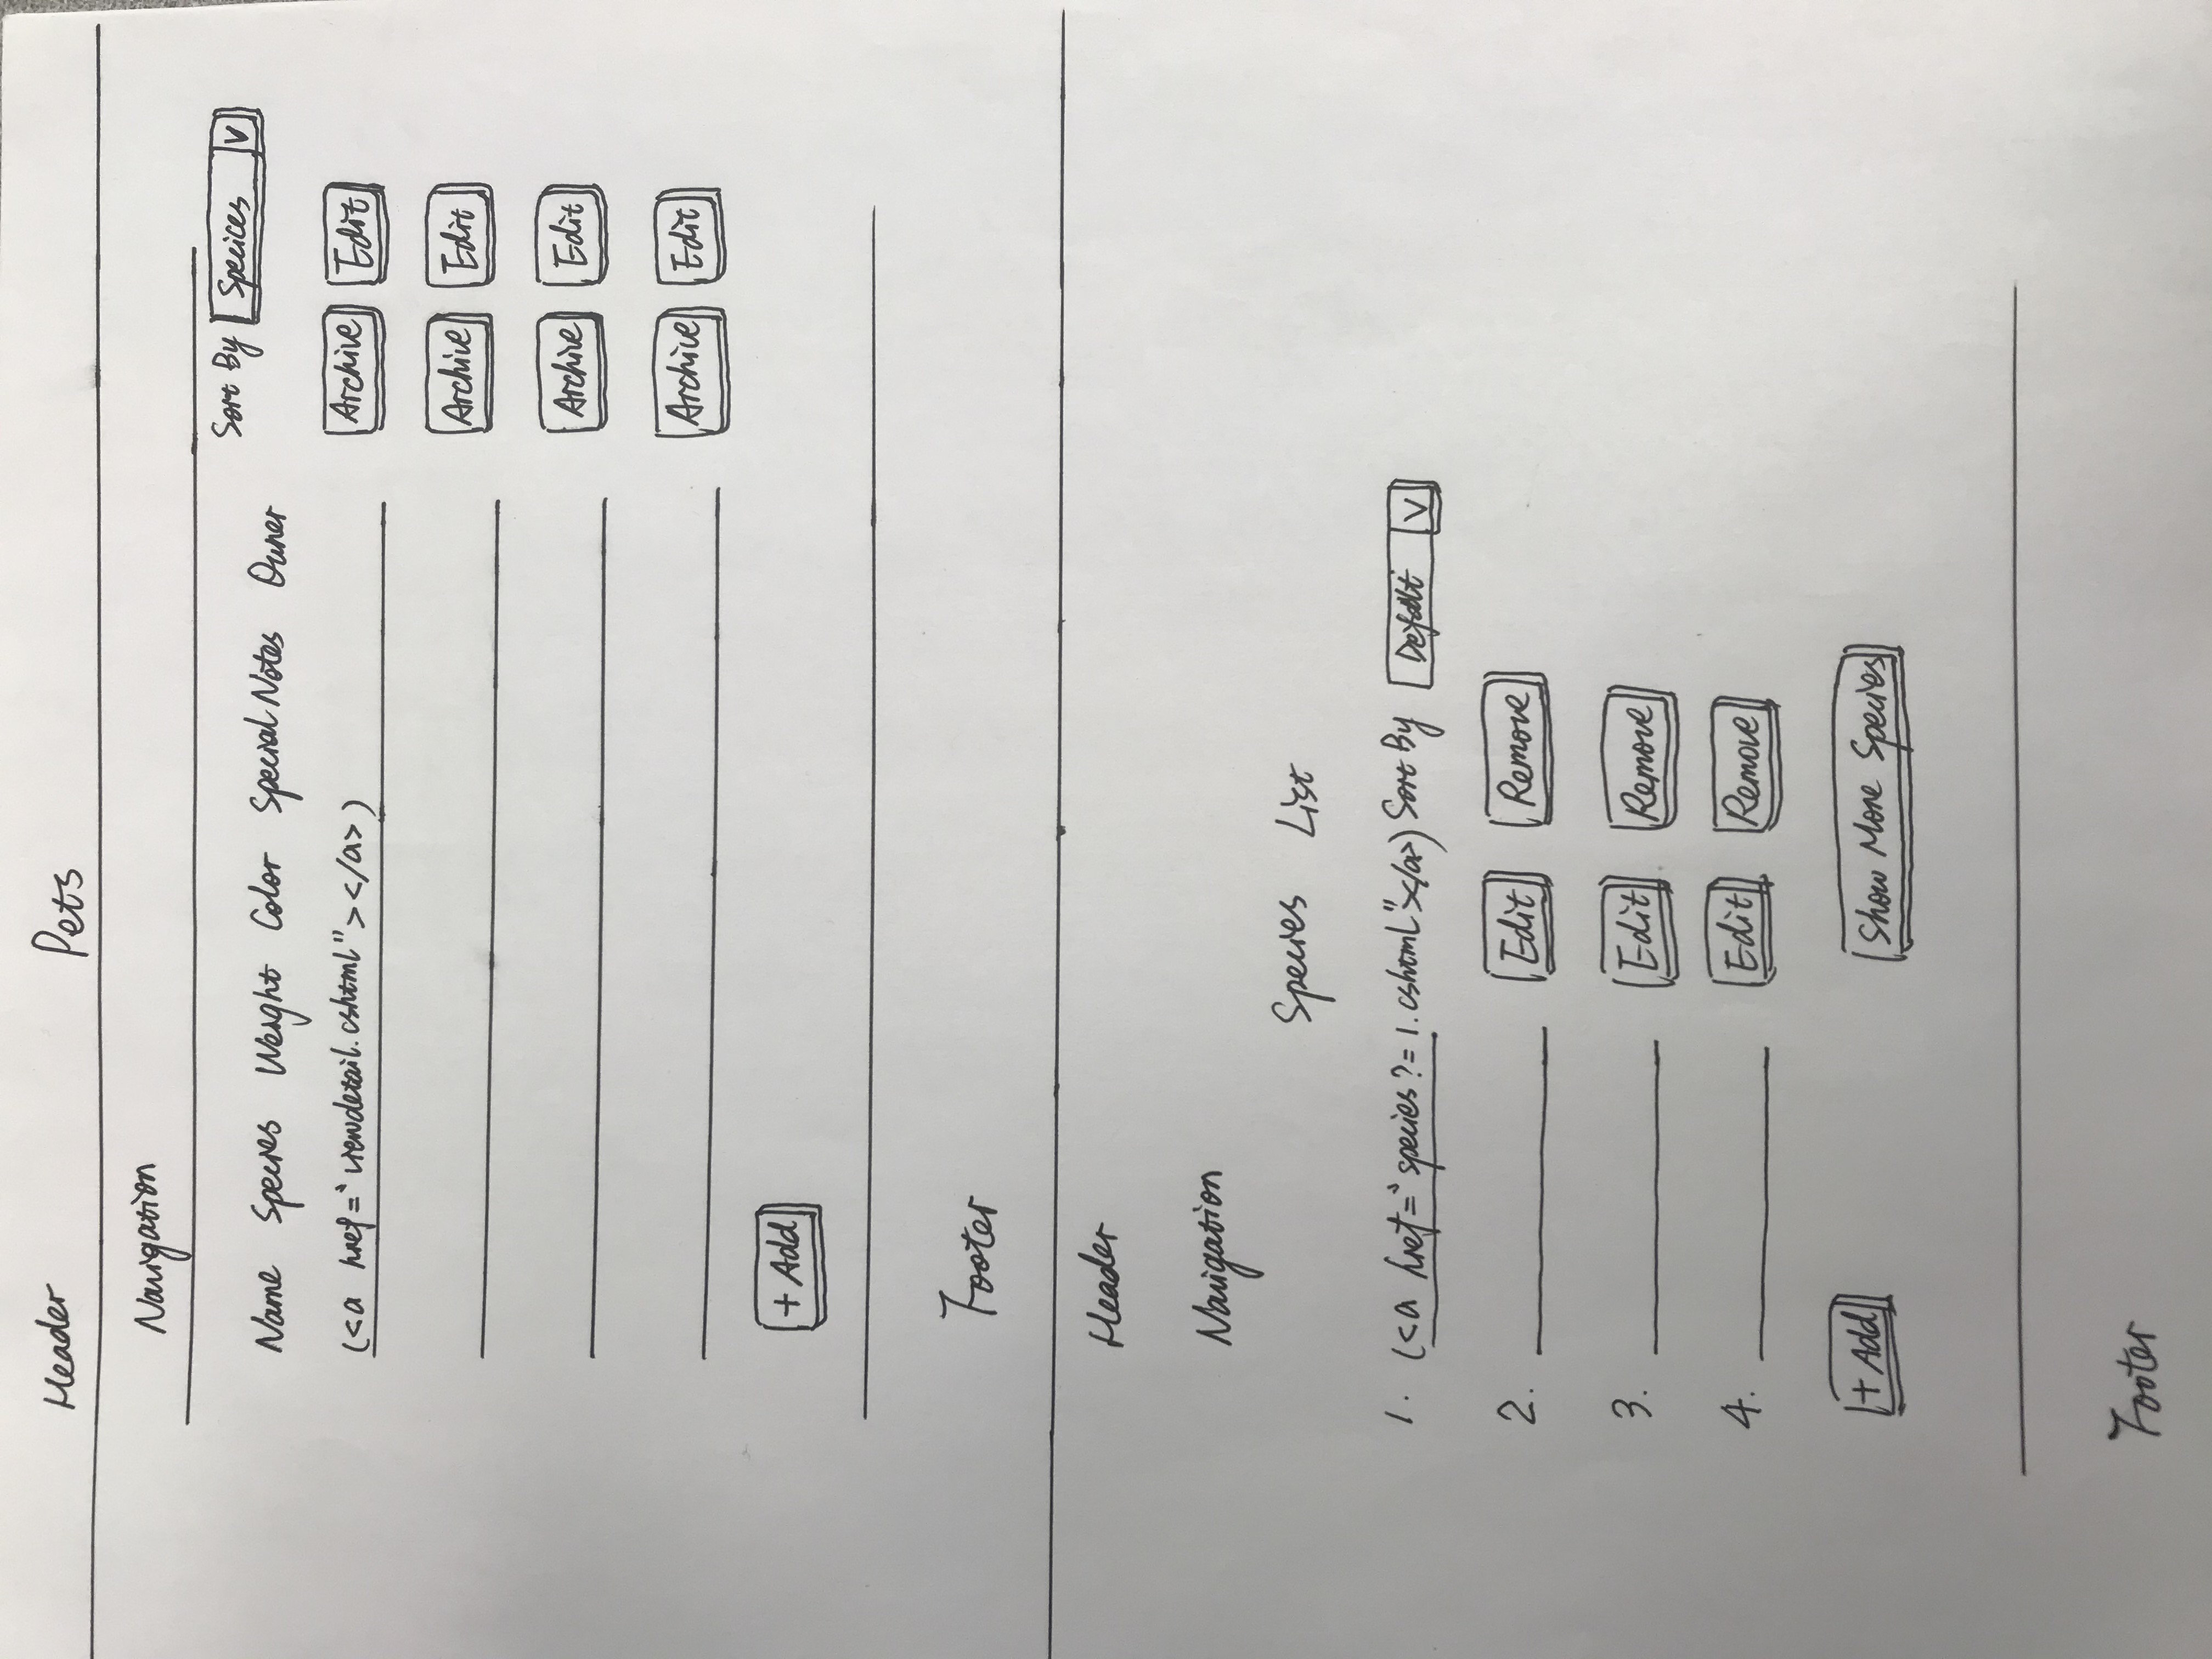 Header Pets
Navigation
Sort By Specices V
Name Species Weight Color Special Notes Owner
(<a href="viewdetail.cshtml"></a>) Archive Edit
Archive Edit
Archive Edit
Archive Edit
+ Add
Footer
Header
Navigation
Species List
1. (<a href="species?=1.cshtml"></a>) Sort By Defalt V
2. Edit Remove
3. Edit Remove
4. Edit Remove
+ Add Show More Species
Footer